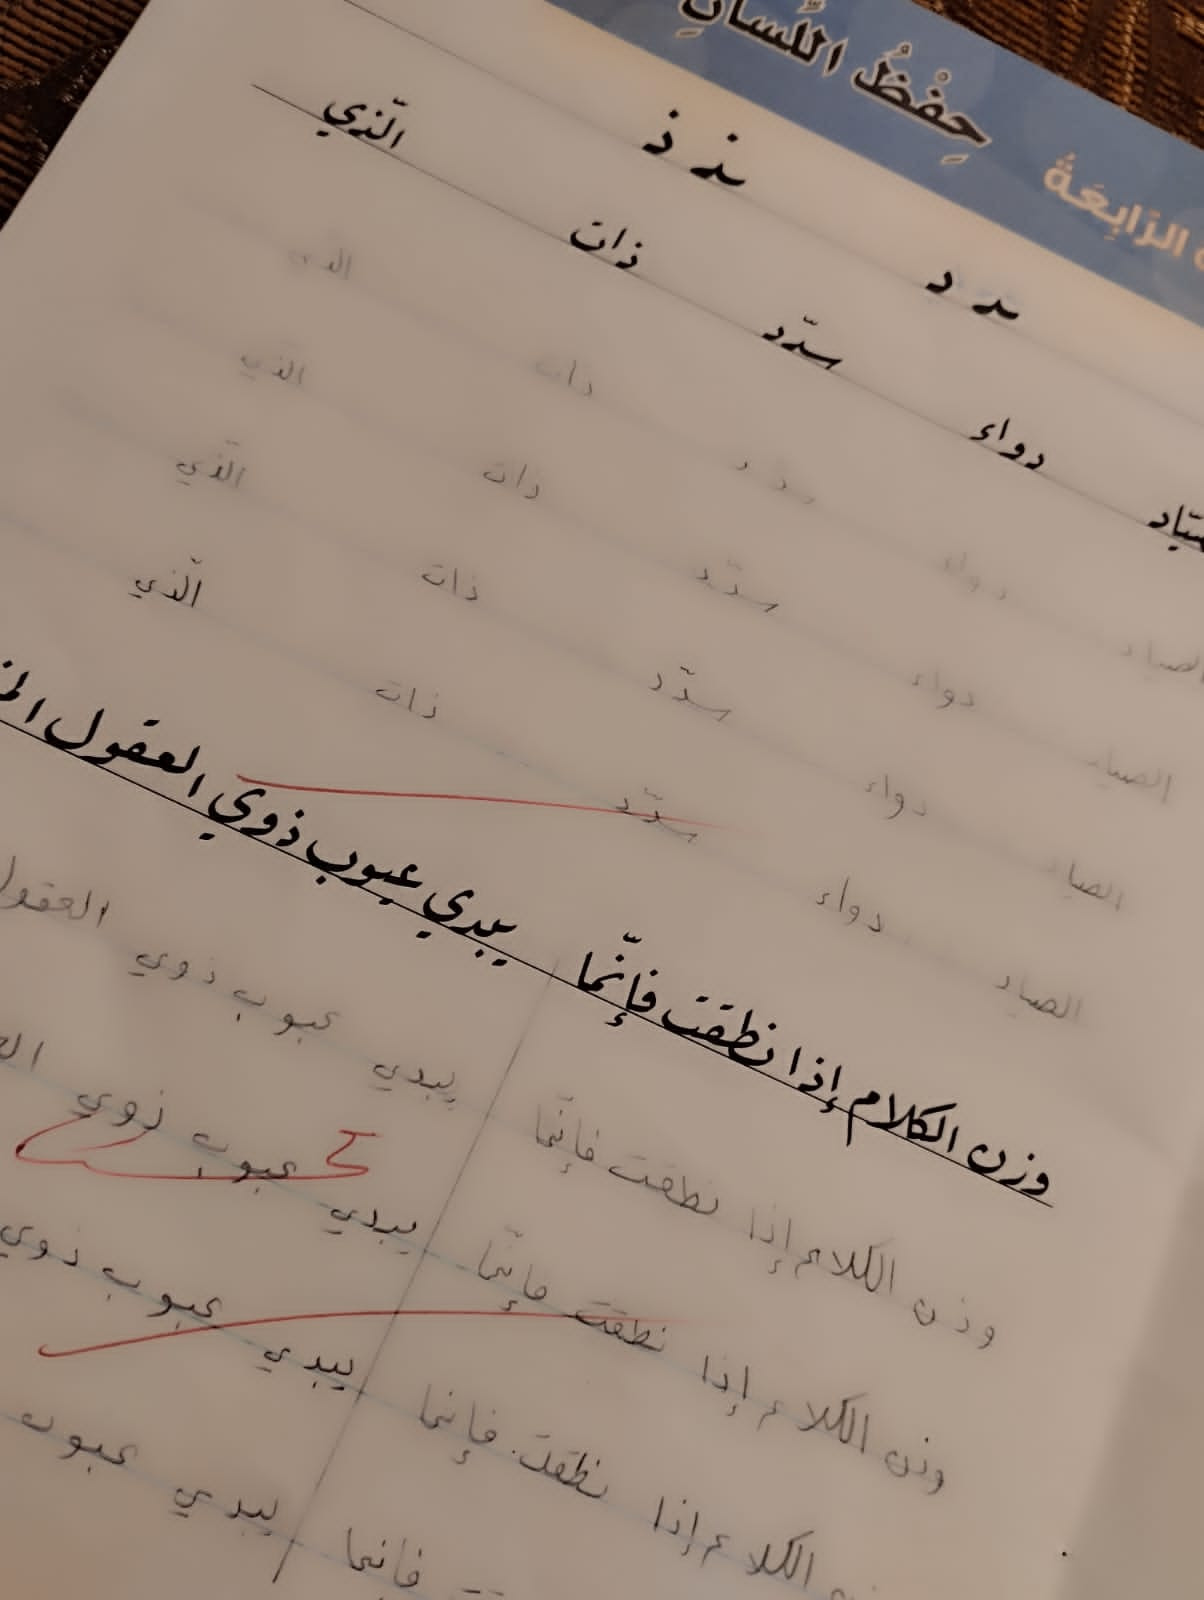 حِفْظُ اللِّسانِ
الرّابِعَةُ
ـد د ـذ ذ
دواء سدّد ذات الّذي
دواء ذات الذي
الصياد دواء سدد ذات الذي
الصياد دواء سدّد ذات الّذي
الصياد دواء سدّد ذات الّذي
الصياد دواء سدّد ذات
وزن الكلام إذا نطقت فإنّما يبدي عيوب ذوي العقول
وزن الكلام إذا نطقت فإنّما يبدي عيوب ذوي العقول
وزن الكلام إذا نطقت فإنّما يبدي عيوب ذوي
وزن الكلام إذا نطقت فإنما يبدي عيوب ذوي
الكلام إذا نطقت فإنما يبدي عيوب
فإنما يبدي عيوب